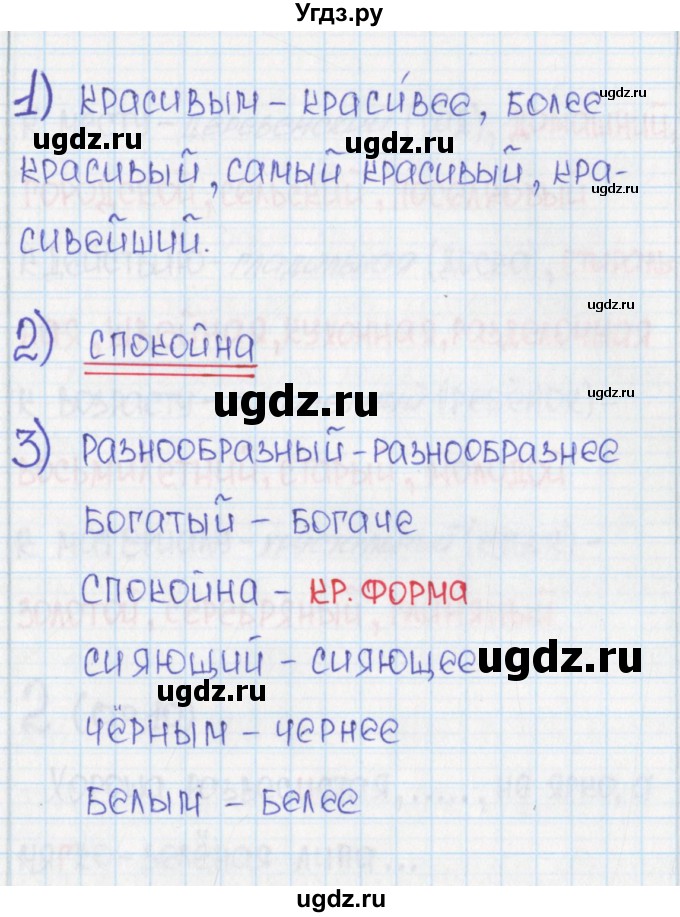 Угдз.ру
1) красивым – краси́вее, более
ugdz.ru ugdz.ru ugdz.ru
красивый, самый красивый, кра-
сивейший.
ugdz.ru
2) спокойна
ugdz.ru ugdz.ru
3) разнообразный – разнообразнее
богатый – богаче
спокойна – кр. форма
сияющий – сияющее ugdz.ru
ugdz.ru
чёрным – чернее
белым – белее
ugdz.ru